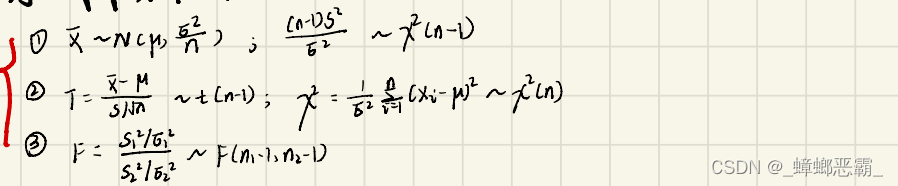 ① X̄ ~ N(μ, σ²/n) ; (n-1)S²/σ² ~ χ²(n-1)
② T = (X̄-μ)/(S/√n) ~ t(n-1) ; χ² = 1/σ² Σᵢ₌₁ⁿ (Xᵢ-μ)² ~ χ²(n)
③ F = (S₁²/σ₁²)/(S₂²/σ₂²) ~ F(n₁-1, n₂-1)
CSDN @_蟑螂恶霸_